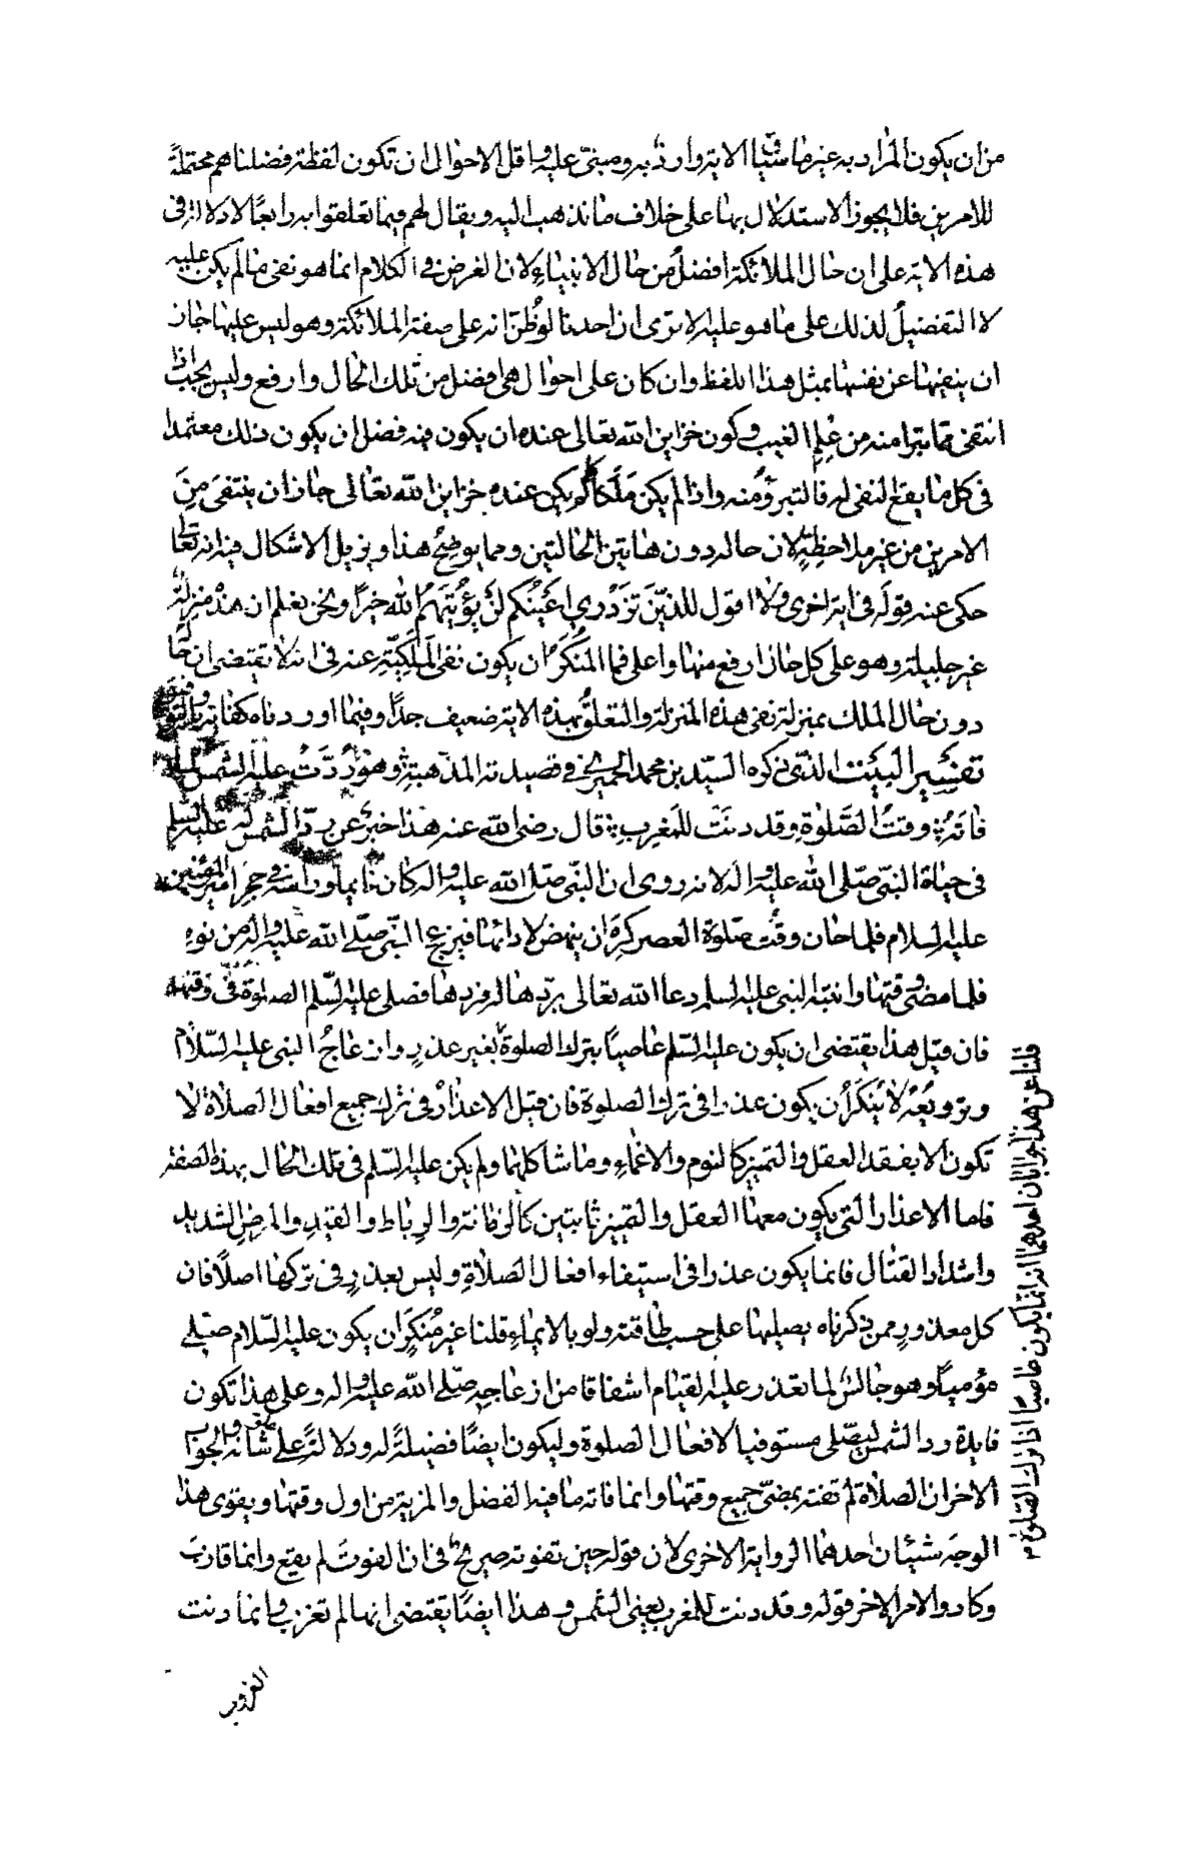 من ان يكون المراد به غير ما سيق الاية وارد به ومبنى عليه واقل الاحوال ان تكون لفظة فضلناهم محتملة
للامرين فلا يجوز الاستدلال بها على خلاف ما نذهب اليه ويقال لهم فيما تعلقوا به رابعًا لا دلالة فى
هذه الاية على ان حال الملائكة افضلُ من حال الانبياءِ لان الغرض فى الكلام انما هو نفى ما لم يكن عليه
لا التفضيلُ لذلك على ما هو عليه الا ترى ان احدنا لو ظُنّ انه على صفة الملائكة وهو ليس عليها جاز
ان ينفيها عن نفسه بمثل هذا اللفظ وان كان على احوال هى افضل من تلك الحال وارفع وليس يجب اذا
انتفى مما تبرا منه من عِلمِ الغيب وكون خزاين الله تعالى عنده ان يكون فيه فضل ان يكون ذلك معتمدا
فى كل ما يقع النفى له فالتبرؤُ منه واذا لم يكن مَلَكًا ولم يكن عنده خزاين الله تعالى جاز ان ينتفىَ مِنَ
الامرين من غير ملاحظةٍ لان حاله دون هاتين الحالتين ومما يوضِحُ هذا ويزيل الاشكال فيه انه تعالى
حكى عنه قولَه فى اية اخرى ولا اقول للذينَ تَزْدَري اَعْيُنُكم لَنْ يُؤْتِيَهُمُ الله خيرًا ونحن نعلم ان هذه منزلةٌ
غير جليلة وهو على كل حال ارفع منها واعلى فما المُنكَرُ من ان يكون نفى المَلَكيّةِ عنه فى انه لا يقتضى ان حاله
دون حال الملك بمنزلة نفى هذه المنزلة والتعلقُ بهذه الاية ضعيف جدًا وفيما اوردناه كفاية وبالله التوفيق
تفسير البيت الذى ذكره السيّد بن محمد الحميرى فى قصيدته المذهبة وهو رُدَّتْ عليه الشمس لما
فاته وقتُ الصَّلوٰةِ وقد دنَت للمَغرِبِ قال رضى الله عنه هذا خبرٌ عن ردّ الشمس له عليه السلم
فى حياة النبى صلّى الله عليه واله لانه روى ان النبىّ صلى الله عليه واله كان نايما وراسه فى حجر امير المؤمنين
عليه السلام فلما حان وقتُ صلوة العصر كرِهَ ان ينهض لادائها فيزعج النبىّ صلى الله عليه واله من نومِه
فلما مضى وقتها وانتبه النبى عليه السلم دعا الله تعالى بردّها له فردها فصلى عليه السّلم الصلوة فى وقتها
فان قيل هذا يقتضى ان يكون عليه السّلم عاصيًا بترك الصلوة بغير عذرٍ وازعاجُ النبى عليه السّلام
وترويعُه لا يُنكَر ان يكون عذرا فى ترك الصلوة فان قيل الاعذارُ فى ترك جميع افعال الصلاة لا
تكون الا بفقد العقل والتميز كالنوم والاغماءِ وما شاكلهما ولم يكن عليه السّلم فى تلك الحال بهذه الصفة
فاما الاعذار التى يكون معها العقل والتميز ثابتين كالزمانة والرباط والقيدِ والمرضِ الشديد
واشتداد القتال فانما يكون عذرا فى استيفاء افعال الصلاةِ وليس بعذرٍ فى تركها اصلًا فان
كل معذورٍ ممن ذكرناه يصليها على حسب طاقته ولو بالايماءِ قلنا غير مُنكَرٍ ان يكون عليه السّلام صلى
مؤميًا وهو جالس لما تعذر عليه القيام اشفاقا من ازعاجِه صلى الله عليه واله وعلى هذا تكون
فايدة رد الشمس ليصلى مستوفيا لافعال الصلوة وليكون ايضًا فضيلةً له ودلالةً على شانه والجواب
الاخر ان الصلاة لم تفته بمضىّ جميع وقتها وانما فاته ما فيه الفضل والمزية من اول وقتها ويقوى هذا
الوجهَ شيئان احدهما الرواية الاخرى لان قوله حين تفوته صريحٌ فى ان الفوتَ لم يقع وانما قاربَ
وكاد والامر الاخر قوله وقد دنت للمغرب يعنى الشمس وهذا ايضًا يقتضى انها لم تغرب وانما دنت
قلنا عن هذا جوابان احدهما انه انما يكون عاصيًا اذا ترك الصلوة